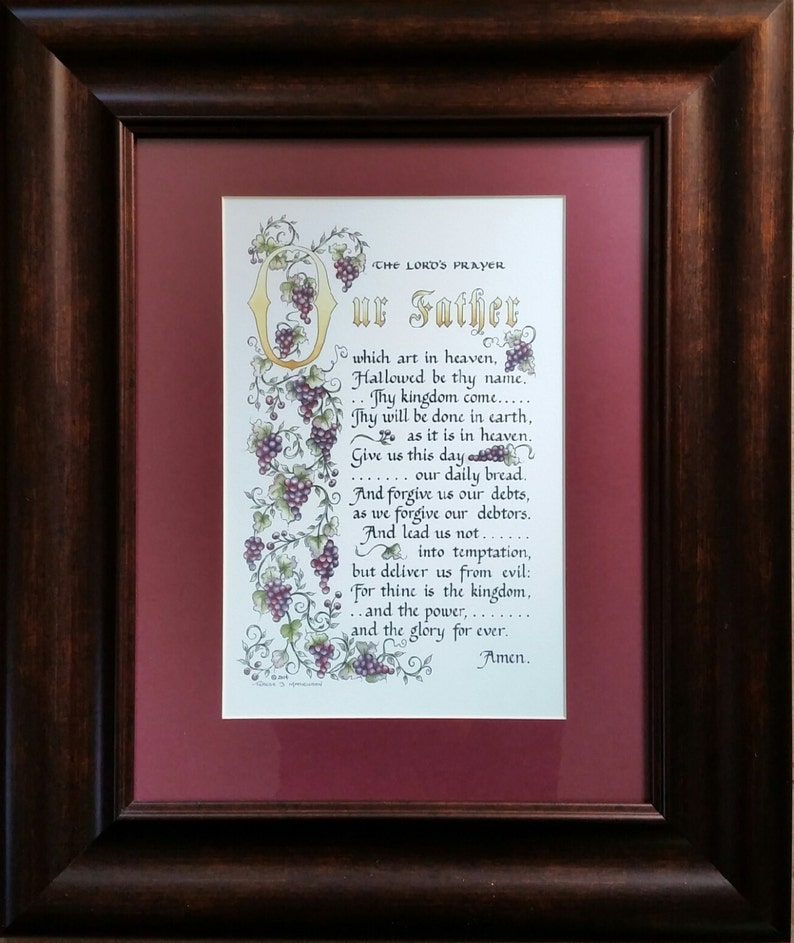 THE LORD'S PRAYER
Our Father
which art in heaven,
Hallowed be thy name.
. . Thy kingdom come.....
Thy will be done in earth,
as it is in heaven.
Give us this day
....... our daily bread.
And forgive us our debts,
as we forgive our debtors.
And lead us not......
into temptation,
but deliver us from evil:
For thine is the kingdom,
..and the power,.......
and the glory for ever.
Amen.
© 2014